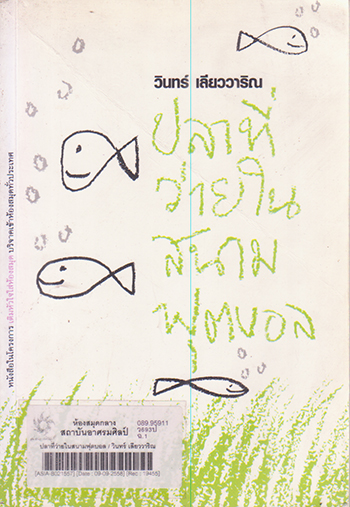 วินทร์ เลียววาริณ
ปลาที่
ว่ายใน
สนาม
ฟุตบอล
หนังสือในโครงการ เติมหัวใจใส่ห้องสมุด บริจาคเข้าห้องสมุดทั่วประเทศ
ห้องสมุดกลาง
สถาบันอาศรมศิลป์
089.95911
ว698ป
ฉ.1
ปลาที่ว่ายในสนามฟุตบอล / วินทร์ เลียววาริณ